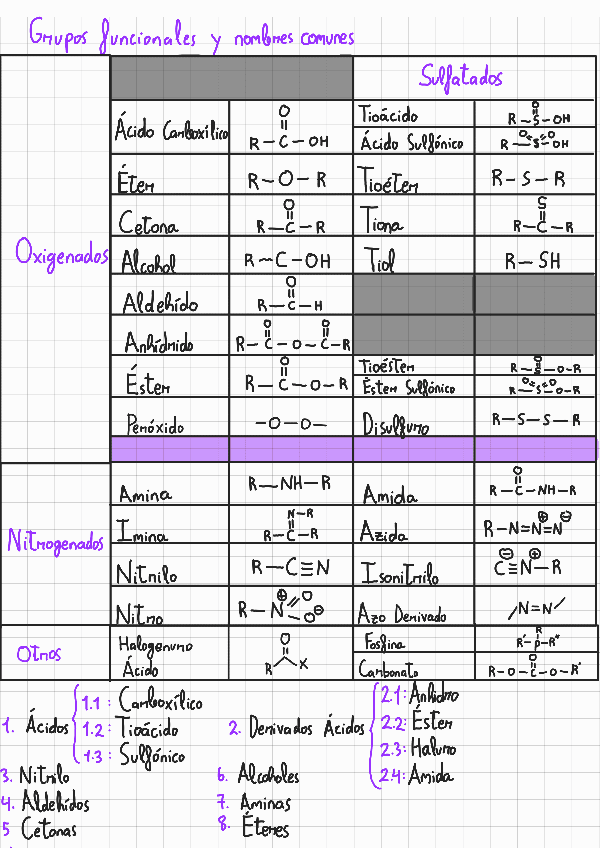 Grupos funcionales y nombres comunes
Sulfatados
Oxigenados
Ácido Carboxílico
R-C-OH
O
Tioácido
R-S-OH
O
Ácido Sulfónico
R-S-OH
O O
Éter
R-O-R
Tioéter
R-S-R
Cetona
R-C-R
O
Tiona
R-C-R
S
Alcohol
R-C-OH
Tiol
R-SH
Aldehído
R-C-H
O
Anhídrido
R-C-O-C-R
O O
Éster
R-C-O-R
O
Tioéster
R-S-O-R
O
Éster Sulfónico
R-S-O-R
O O
Peróxido
-O-O-
Disulfuro
R-S-S-R
Nitrogenados
Amina
R-NH-R
Amida
R-C-NH-R
O
Imina
N-R
R-C-R
Azida
R-N=N=N
⊕ ⊖
Nitrilo
R-C≡N
Isonitrilo
C≡N-R
⊖ ⊕
Nitro
R-N
⊕ O
O⊖
Azo Derivado
/N=N/
Otros
Halogenuro
Ácido
O
R X
Fosfina
R
R'-P-R"
Carbonato
O
R-O-C-O-R'
1. Ácidos
1.1: Carboxílico
1.2: Tioácido
1.3: Sulfónico
2. Derivados Ácidos
2.1: Anhidro
2.2: Éster
2.3: Haluro
2.4: Amida
3. Nitrilo
4. Aldehídos
5 Cetonas
6. Alcoholes
7. Aminas
8. Éteres